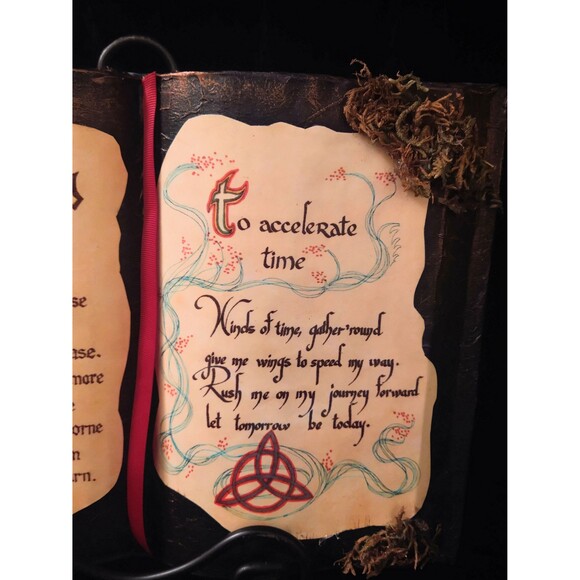 se
ase.
more
e
orne
n
rn.
To accelerate
time
Winds of time, gather'round
give me wings to speed my way.
Rush me on my journey forward
let tomorrow be today.